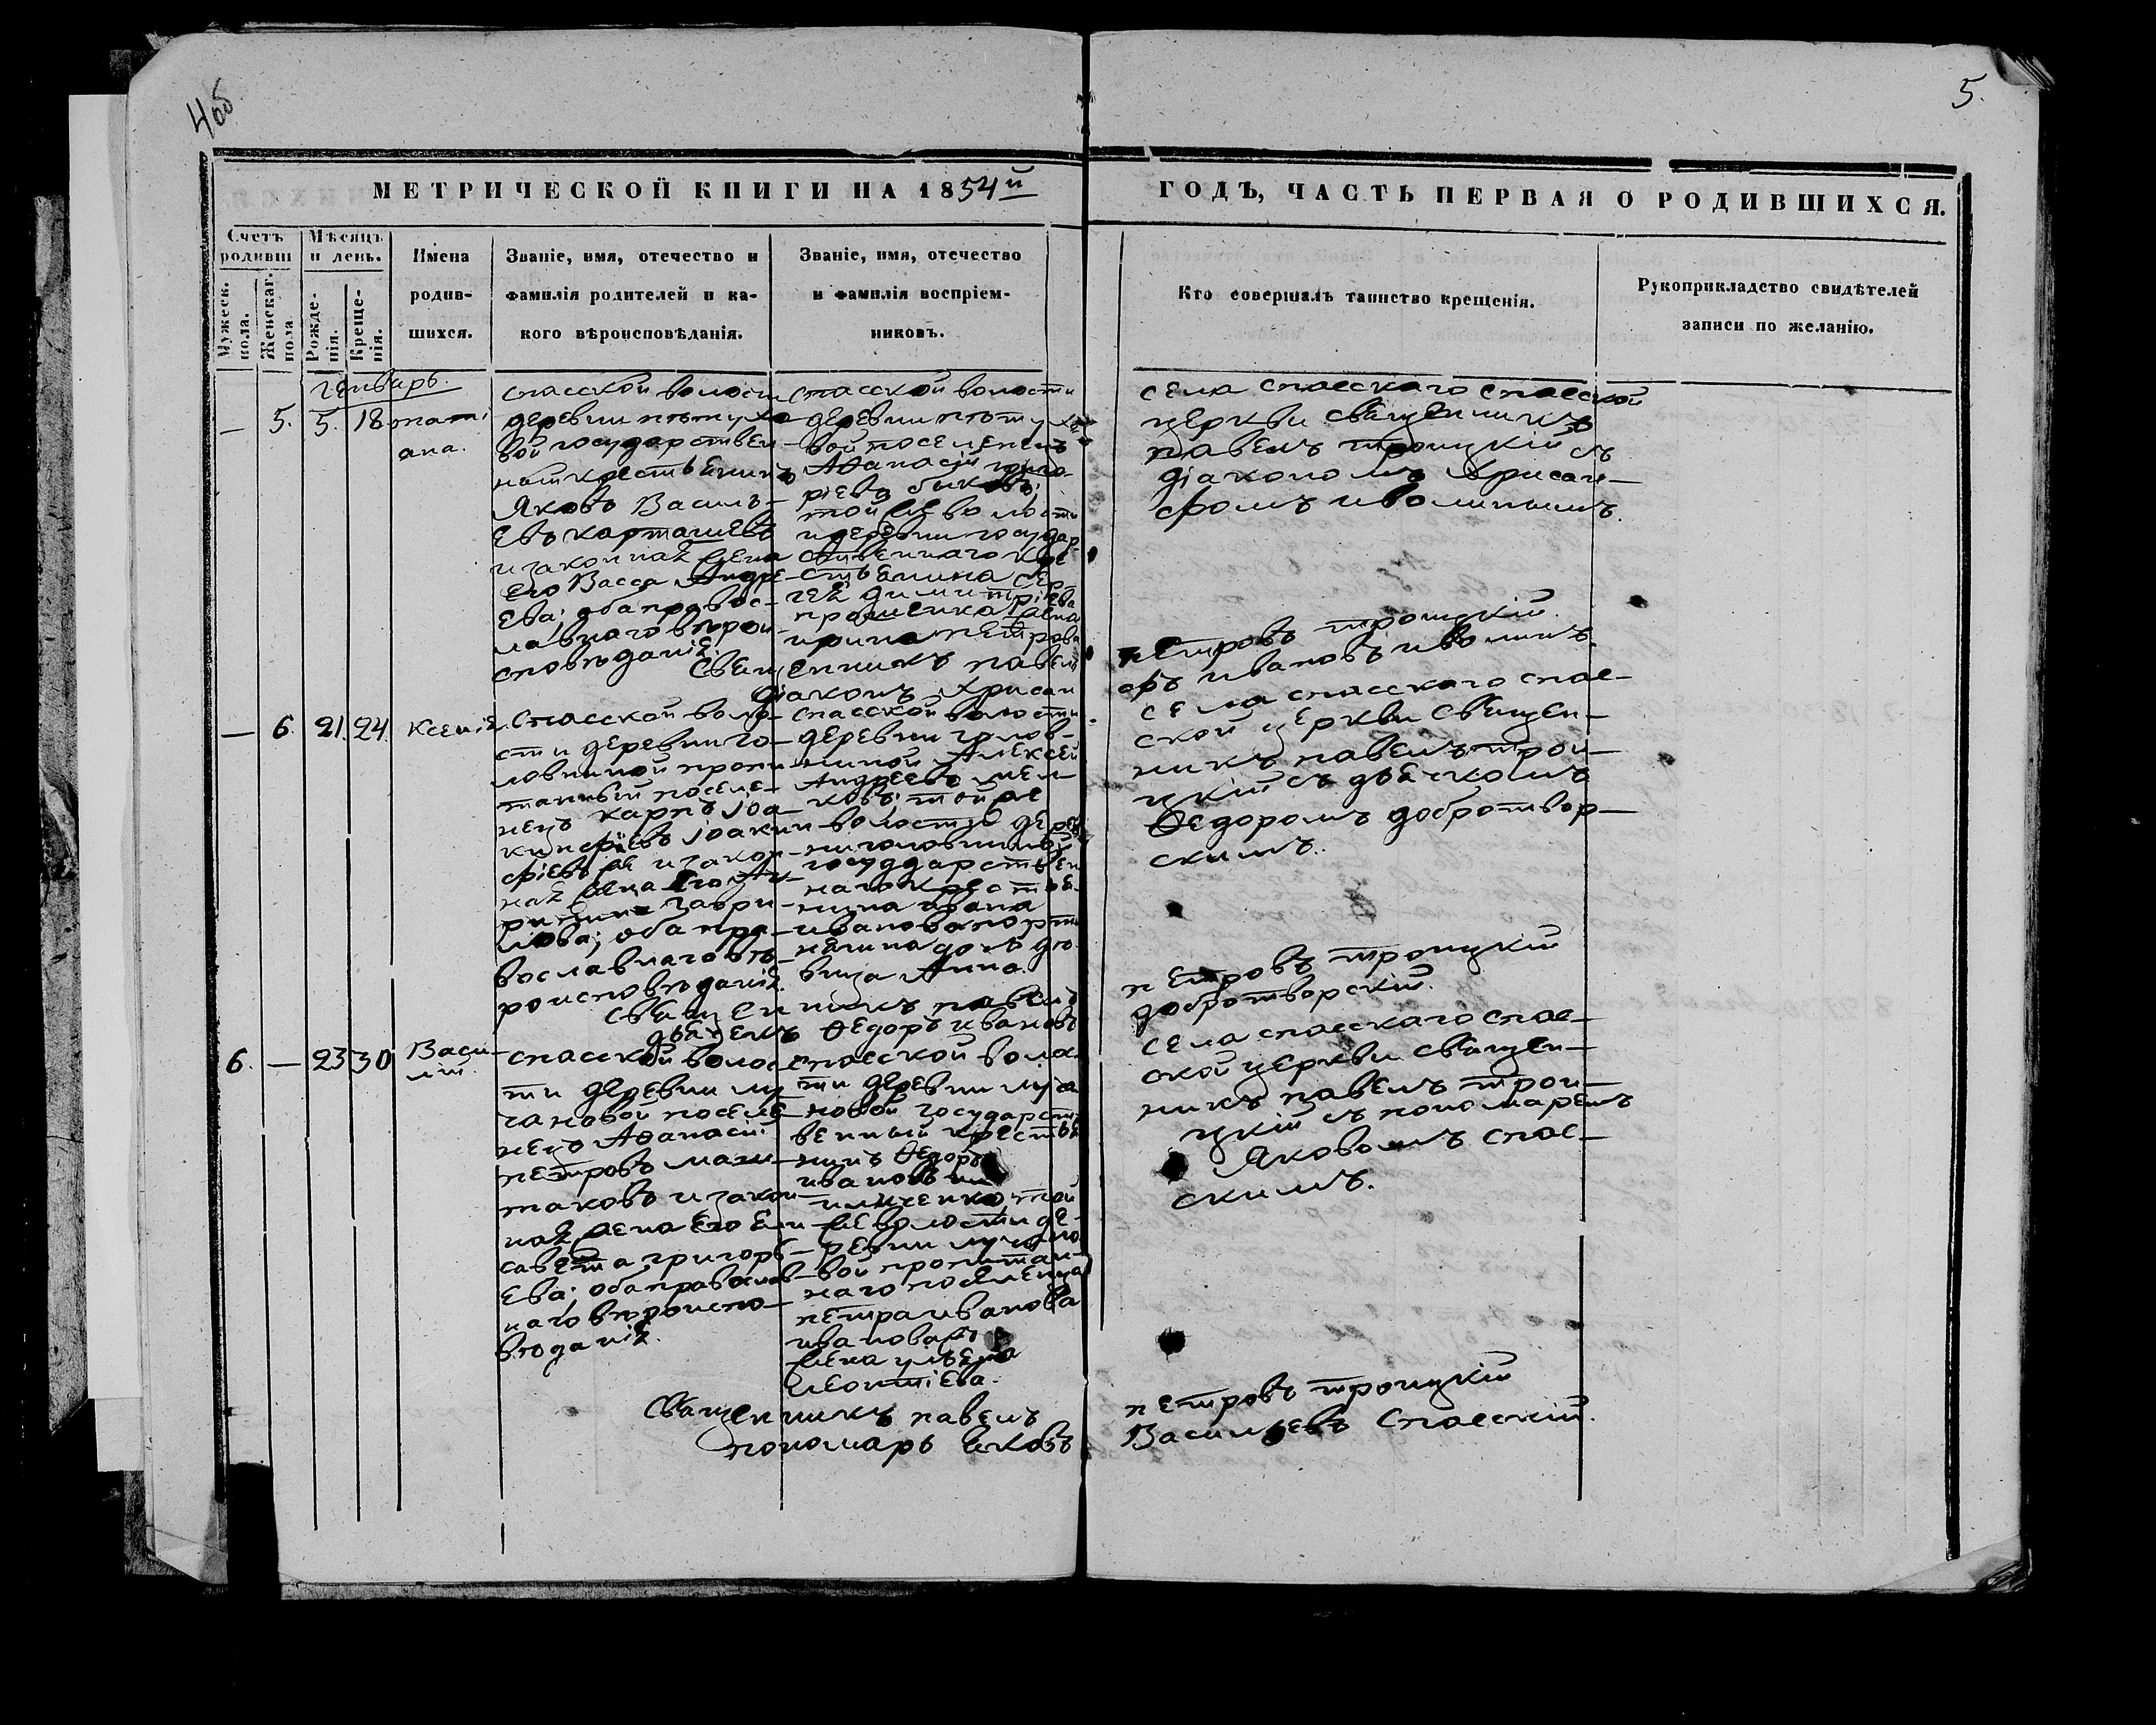 4об
5.
МЕТРИЧЕСКОЙ КНИГИ НА 1854й
ГОДЪ, ЧАСТЬ ПЕРВАЯ О РОДИВШИХСЯ.
Счетъ родивш
Мужеск. пола.
Женскаг. пола
Мѣсяцъ и день.
Рожде-нія.
Креще-нія.
Имена
родив-
шихся.
Званіе, имя, отечество и
фамилія родителей и ка-
кого вѣроисповѣданія.
Званіе, имя, отечество
и фамилія воспріем-
никовъ.
Кто совершалъ таинство крещенія.
Рукоприкладство свидѣтелей
записи по желанію.
генварь.
— 5. 5. 18
тати
ана.
спасской волости
деревни пѣтухо
вой государствен
ный крестьянинъ
Яковъ Василь-
евъ карташевъ
и законная жена
его Васса Андре
ева; оба правос-
лавнаго вѣрои
сповѣданія.
спасской волости
деревни пѣтухо
вой поселенецъ
Афанасій григо
ріевъ быковъ;
той же волости
и деревни государ
ственнаго кре
стьянина Сер
гея димитріева
жена
ирина петрова
села спасскаго спасской
церкви священникъ
павелъ троицкій съ
діакономъ Хрисан-
фомъ иволинымъ.
Священникъ павелъ
петровъ троицкій.
діаконъ Хрисан
фъ ивановъ иволинъ.
— 6. 21. 24.
Ксенія.
Спасской воло-
сти деревни го-
ловниной пропи
танный поселе-
нецъ карпъ іоа-
кинфіевъ іоакин
фіевъ же и закон
ная жена его Ма
гаври-
лова; оба пра-
вославнаго вѣ-
роисповѣданія.
спасской волости
деревни голов-
ниной Алексей
Андреевъ
ковъ; той же
волости дерев
ни головниной
госуддарствен
наго крестья
нина ивана
иванова
дочь дѣ
вица Анна.
села спасскаго спас-
ской церкви священ-
никъ павелъ трои-
цкій съ дьячкомъ
Федоромъ добротвор-
скимъ.
Священникъ павелъ
петровъ троицкій
дьячекъ Федоръ ивановъ
добротворскій.
6. — 23 30
Васи
лій.
спасской волос
ти деревни лу
гановой поселе
нецъ Афанасій
петровъ
и закон
ная жена его Ели
савета григорь
ева; оба православ
наго вѣроиспо-
вѣданія.
спасской волос
ти деревни луга
новой государст
венный крестья
нинъ Федоръ
ивановъ
той
же волости де-
ревни лугано
вой пропитан-
наго поселенца
петра иванова
иванова
жена ульяна
леонтіева.
села спасскаго спас-
ской церкви священ-
никъ павелъ трои-
цкій съ пономаремъ
Яковомъ спас-
скимъ.
Священникъ павелъ
петровъ троицкій
пономарь Яковъ
Васильевъ Спасскій.